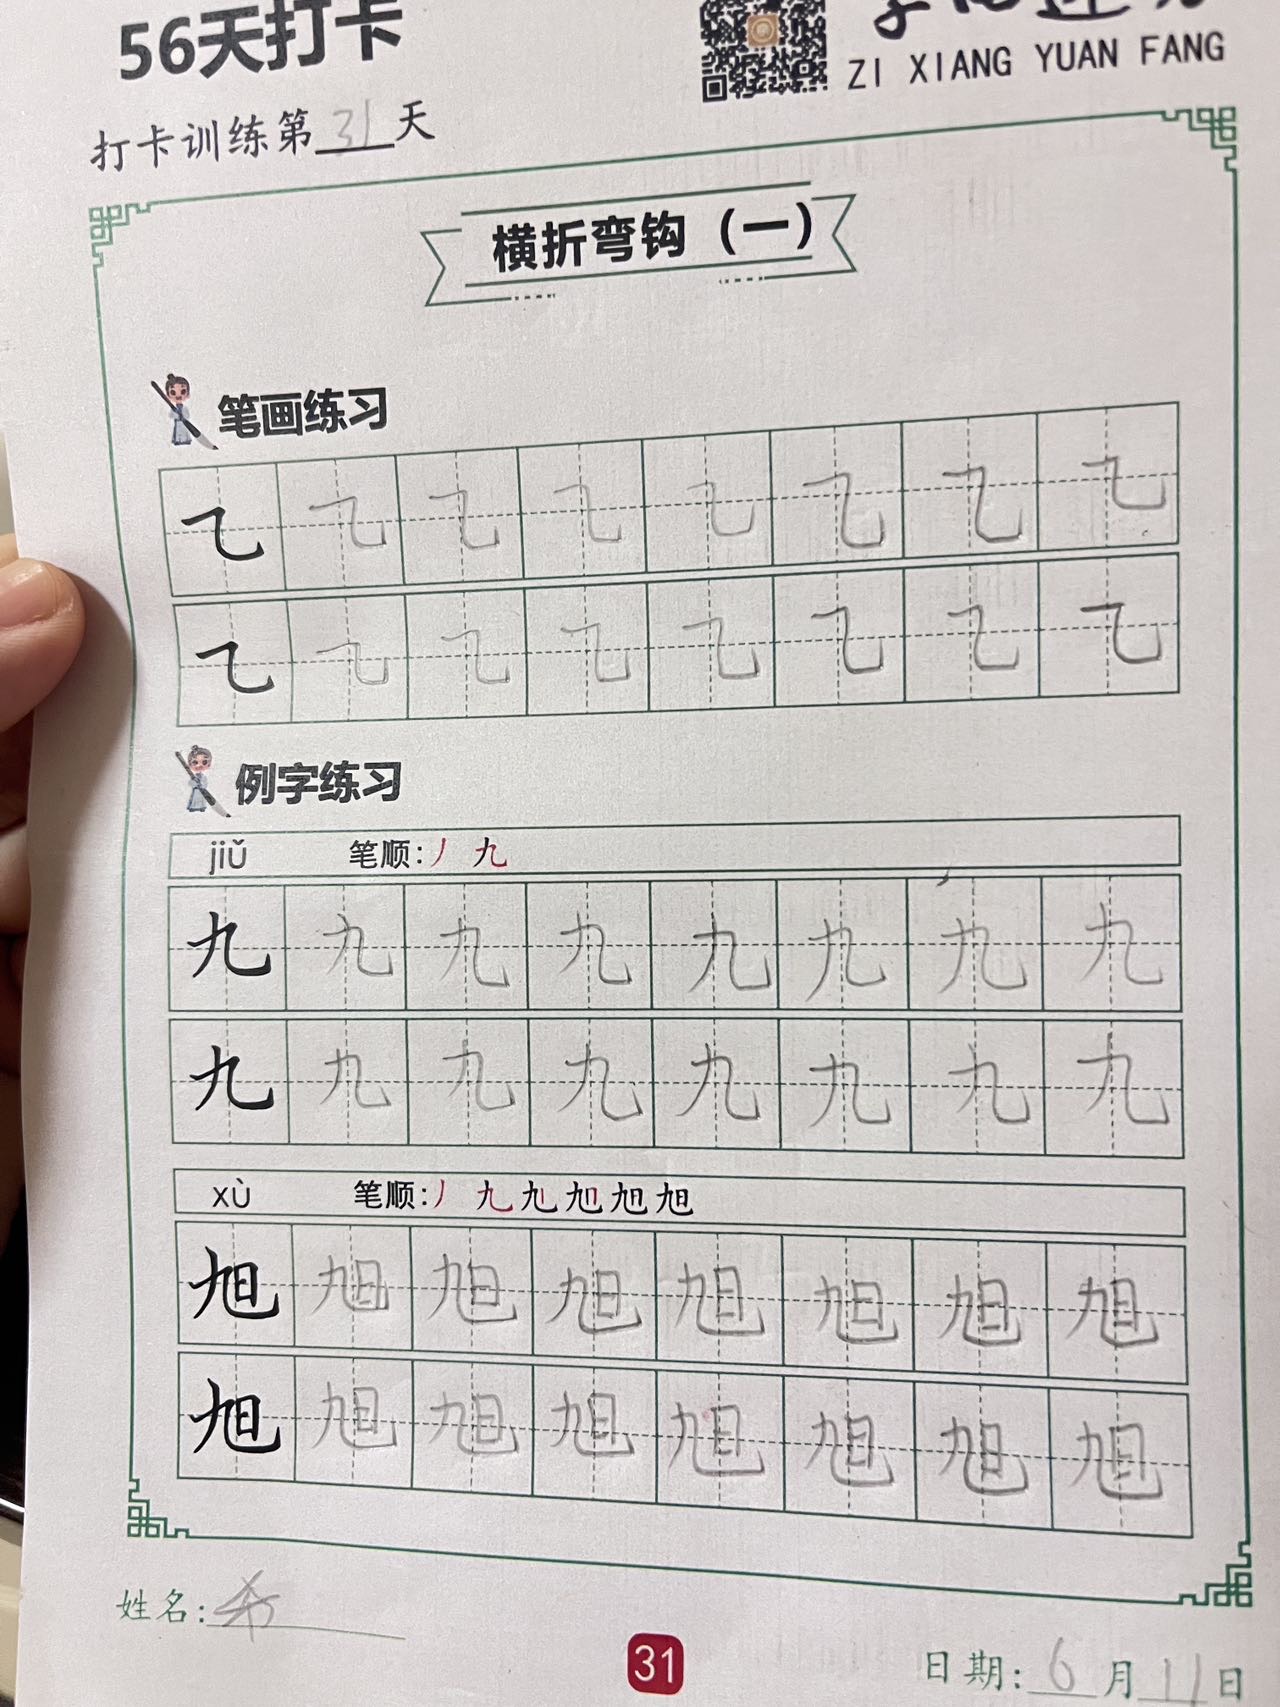 56天打卡
ZI XIANG YUAN FANG
打卡训练第31天
横折弯钩（一）
笔画练习
㇈ ㇈ ㇈ ㇈ ㇈ ㇈ ㇈ ㇈
㇈ ㇈ ㇈ ㇈ ㇈ ㇈ ㇈ ㇈
例字练习
jiǔ 笔顺：丿 九
九 九 九 九 九 九 九 九
九 九 九 九 九 九 九 九
xù 笔顺：丿 九 旭 旭
旭 旭 旭 旭 旭 旭 旭 旭
旭 旭 旭 旭 旭 旭 旭 旭
姓名：希
31
日期：6月11日